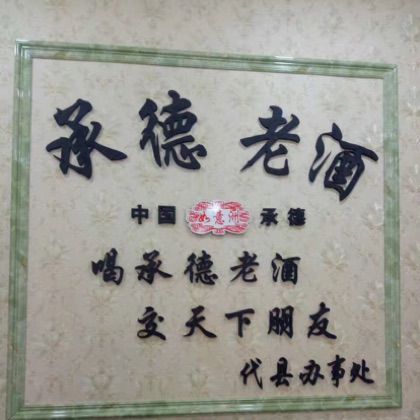 承德老酒
中国 如意洲 承德
喝承德老酒
交天下朋友
代县办事处